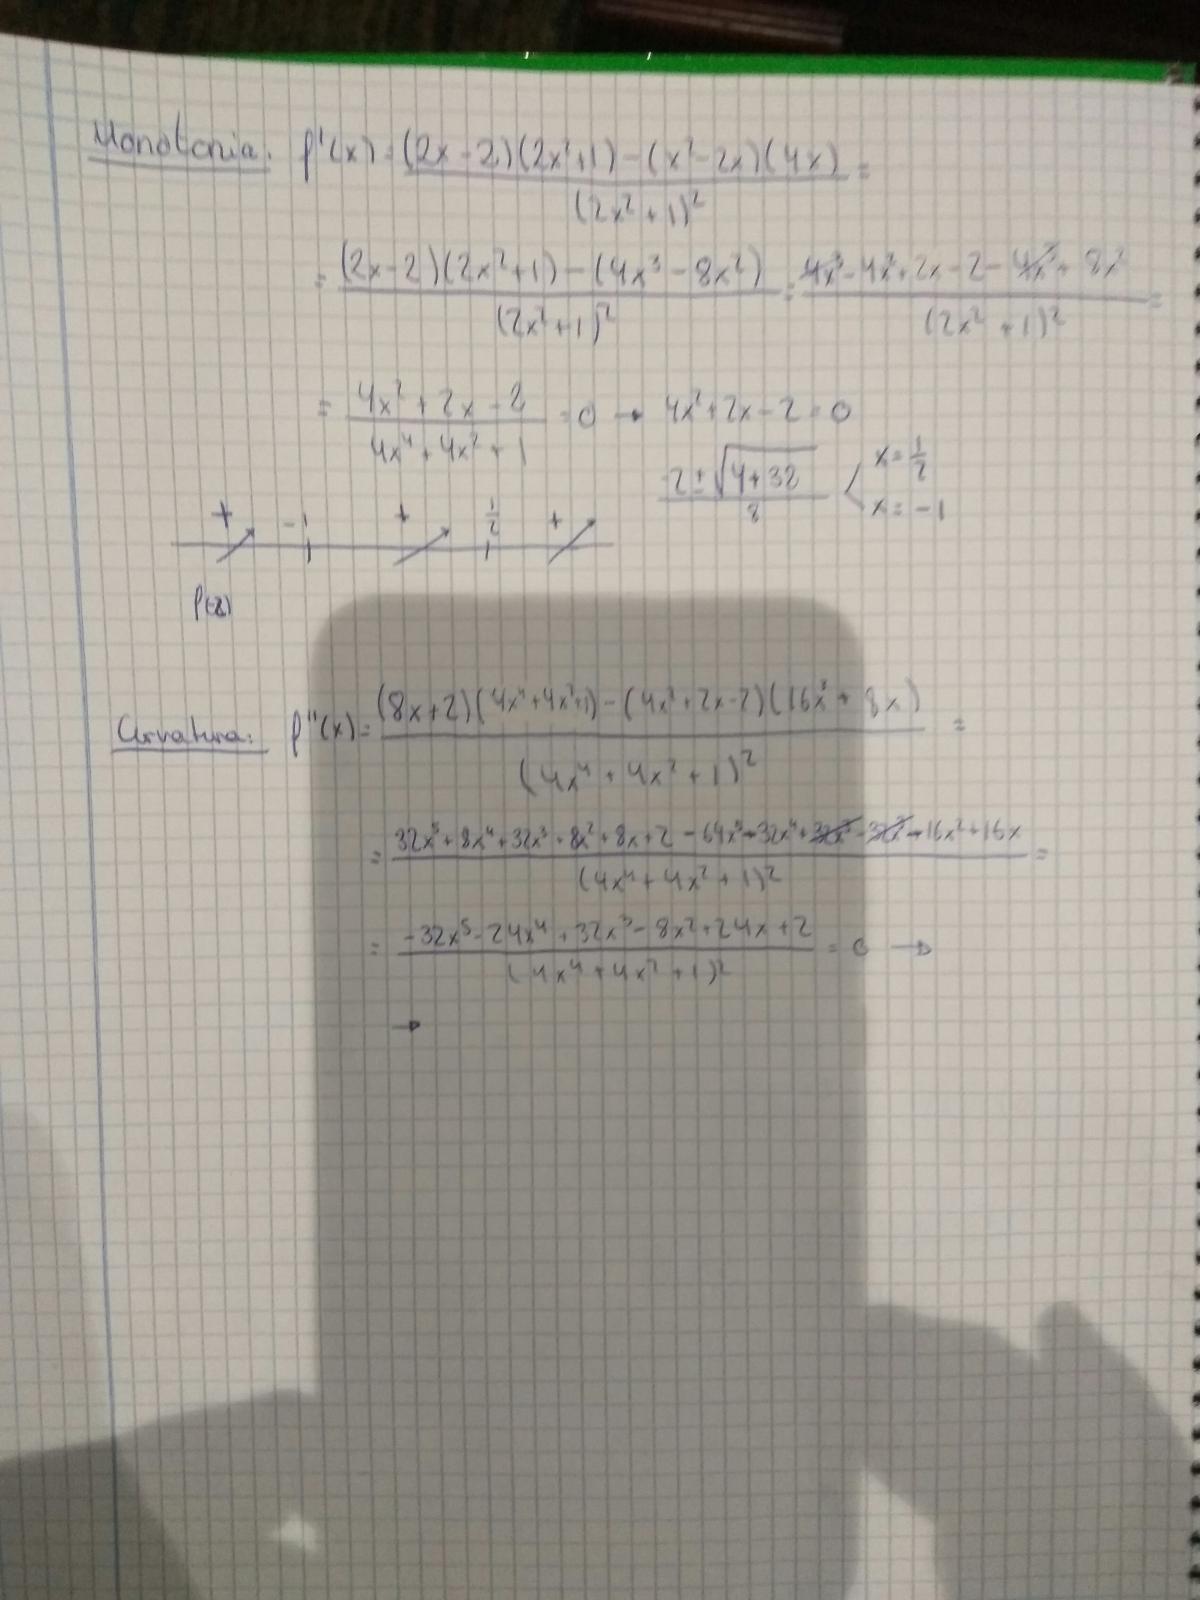 Monotonia: f'(x) = (2x-2)(2x²+1) - (x²-2x)(4x) / (2x²+1)² =
= (2x-2)(2x²+1) - (4x³-8x²) / (2x²+1)² = 4x³-4x²+2x-2-4x³+8x² / (2x²+1)² =
= 4x²+2x-2 / 4x⁴+4x²+1 = 0 → 4x²+2x-2=0
-2±√4+32 / 8 x=1/2 x=-1
+ -1 + 1/2 +
f(-2)
Curvatura: f''(x) = (8x+2)(4x⁴+4x²+1) - (4x²+2x-2)(16x³+8x) / (4x⁴+4x²+1)² =
= 32x⁵+8x⁴+32x³+8x²+8x+2-64x⁵-32x⁴+32x³-32x³-16x²+16x / (4x⁴+4x²+1)² =
= -32x⁵-24x⁴+32x³-8x²+24x+2 / (4x⁴+4x²+1)² = 0 →
→